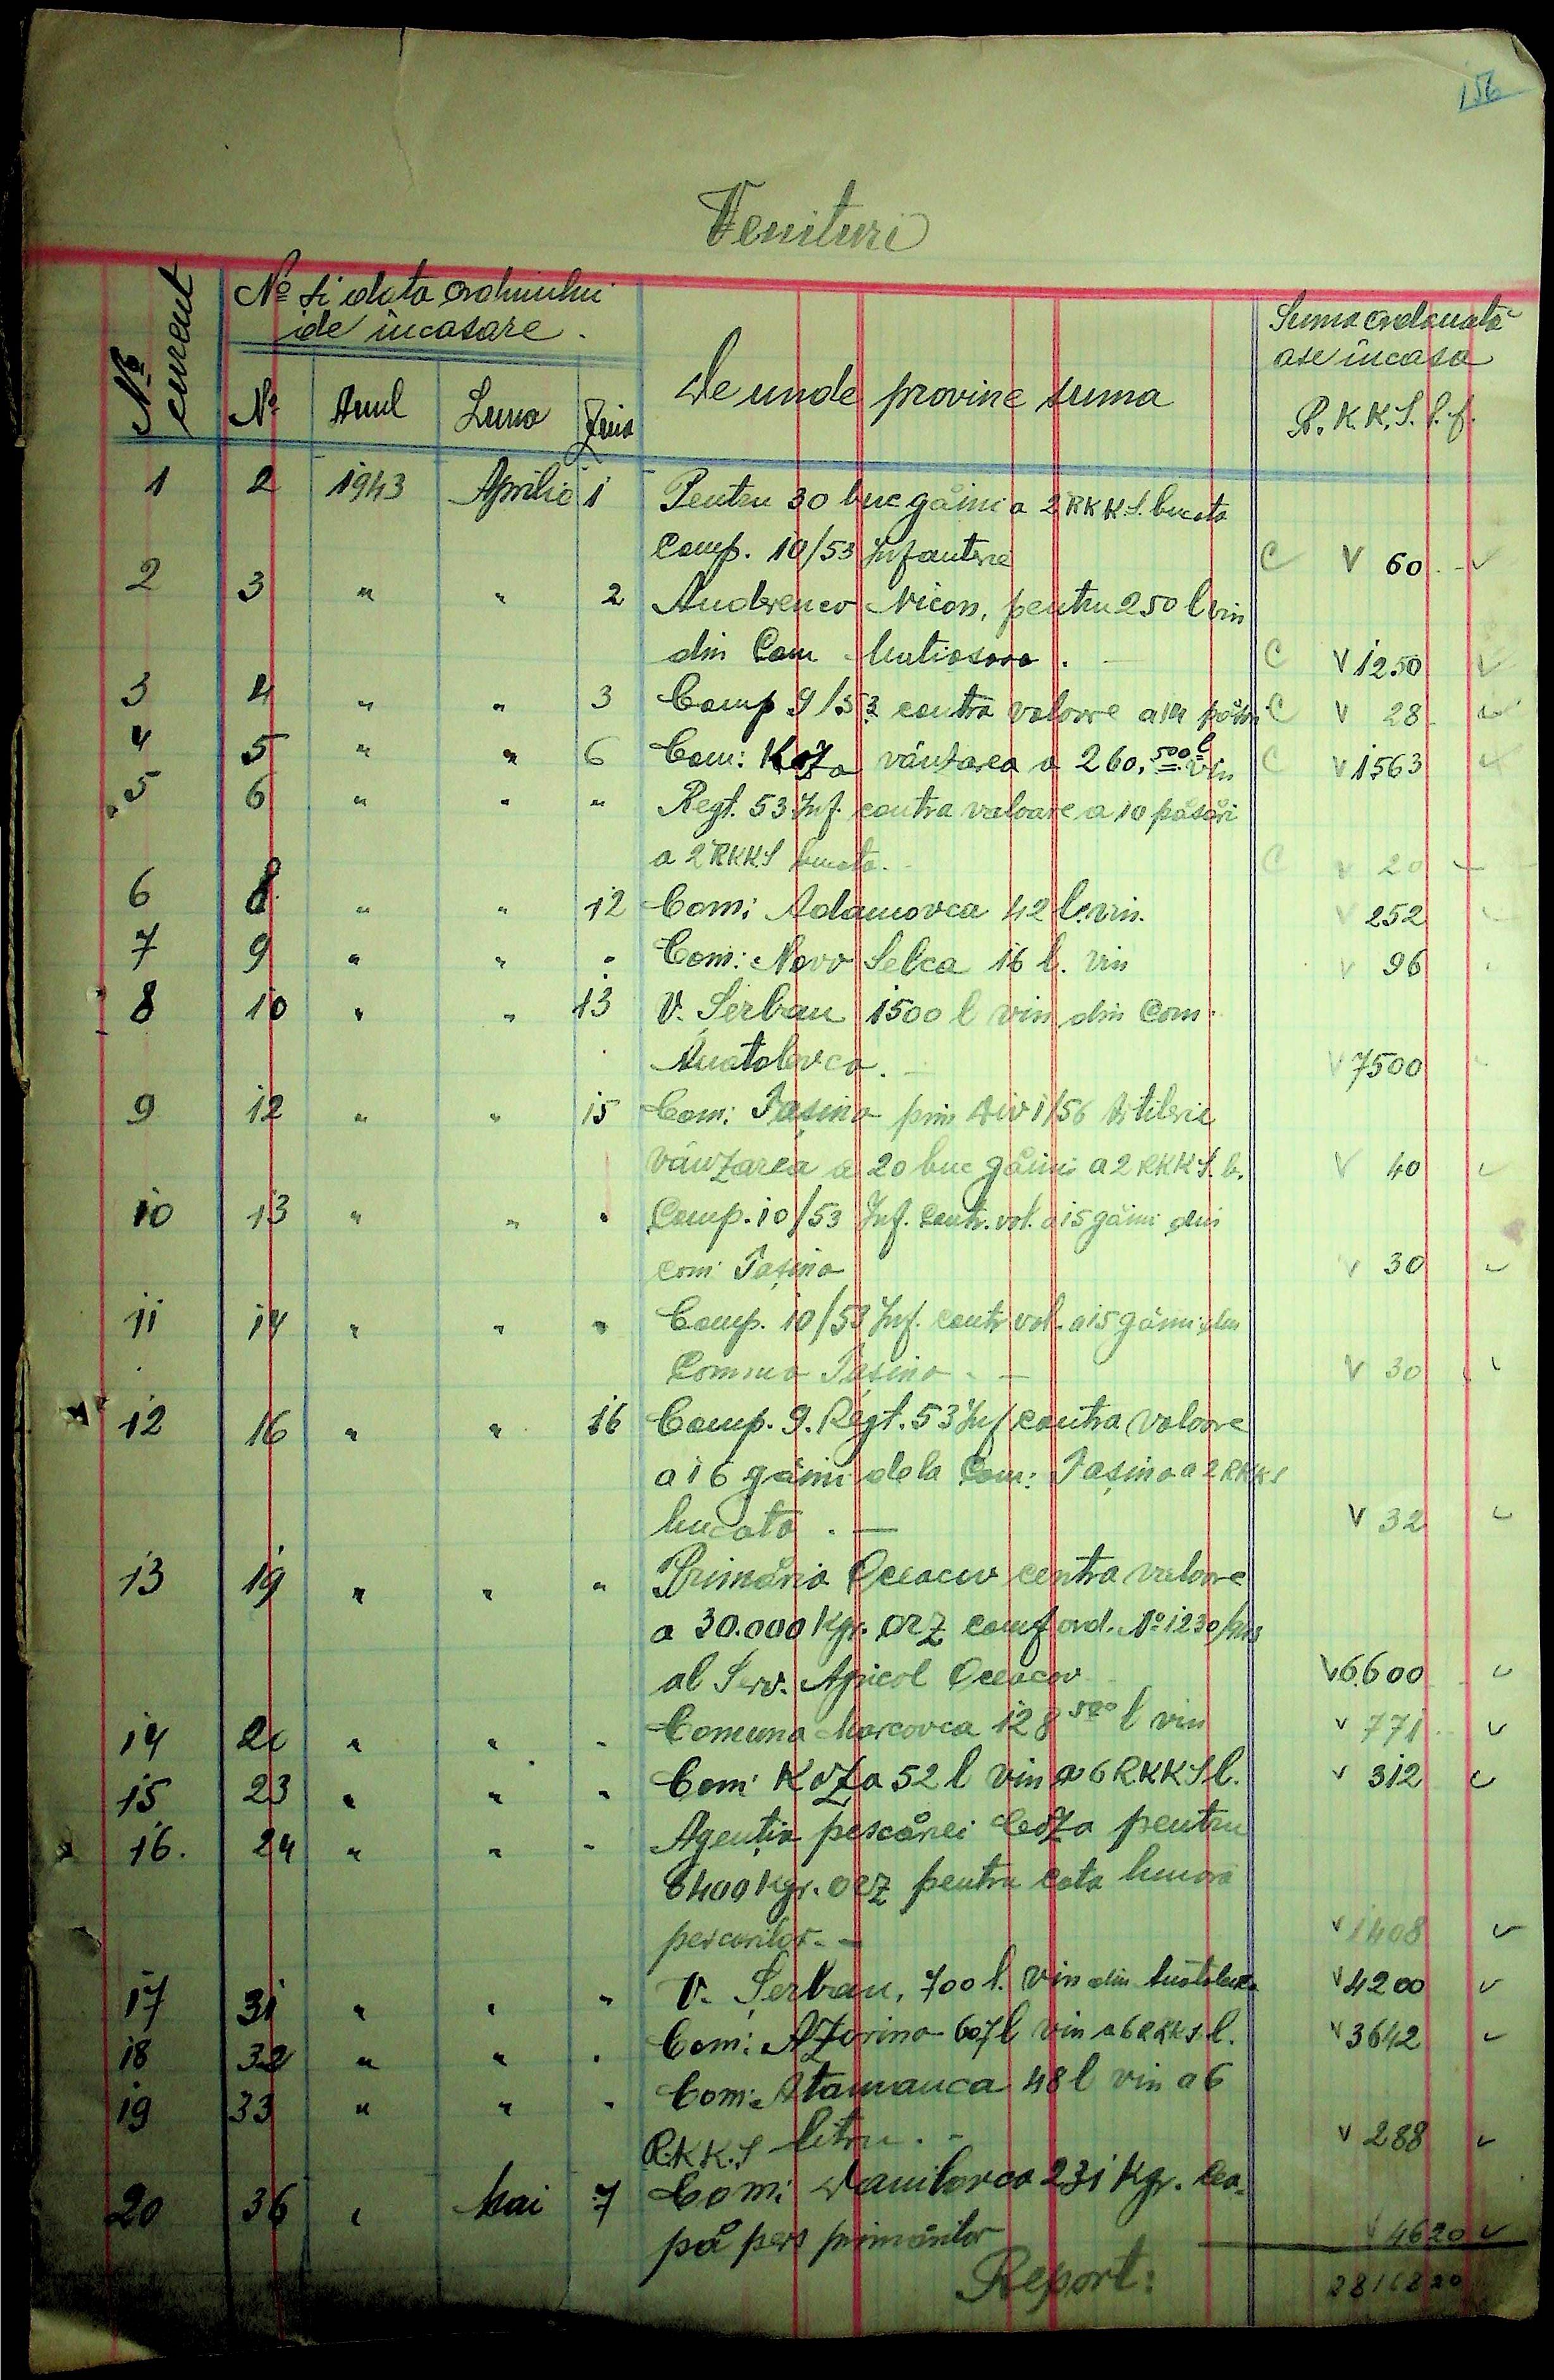 156
Venituri
No current
No și data ordinului
de încasare.
No Anul Luna Ziua
De unde provine suma
Suma ordonată
a se încasa
R.K.K.S. l. f.
1 2 1943 Aprilie 1 Pentru 30 buc găini a 2 RKKS. bucata
Comp. 10/53 Infanterie C V 60
2 3 " " 2 Nicon, pentru 250 l vin
din Com. C V 1250
3 4 " " 3 Comp 9/53 contra valoare a 14 păsări C V 28
4 5 " " 6 Com: Koza vânzarea a 260,500 l vin C V 1563
5 6 " " " Regt. 53 Inf. contra valoare a 10 păsări
a 2 RKKS bucata. C V 20
6 8 " " 12 Com: Adamovca 42 l. vin. V 252
7 9 " " " Com: Novo Selca 16 l. vin V 96
8 10 " " 13 V. Șerban 1500 l vin din Com.
Anatolevca. V 7500
9 12 " " 15 Com: Tașino prin Div 1/56 Artilerie
vânzarea a 20 buc găini a 2 RKKS. b. V 40
10 13 " " " Comp. 10/53 Inf. contr. val. a 15 găini din
com Tașino V 30
11 14 " " " Comp. 10/53 Inf. contr val. a 15 găini din
Comuna Tașino. V 30
12 16 " " 16 Comp. 9. Regt. 53 Inf contra valoare
a 16 găini dela Com: Tașino a 2 RKKS
bucata. — V 32
13 19 " " " Primăria Oceacov contra valoare
a 30.000 Kgr. orz conf ord. No 1230/943
al Serv. Agricol Oceacov V 6600
14 20 " " " Comuna Marcovca 128 500 l vin V 771
15 23 " " " Com: Koza 52 l vin a 6 RKKS l. V 312
16. 24 " " " Agenția pescăriei Coza pentru
6400 Kgr. orz pentru cota
pescarilor. — V 1408
17 31 " " " V. Șerban, 700 l. vin din V 4200
18 32 " " " Com: 607 l vin a 6 RKKS l. V 3642
19 33 " " " Com: Atamanca 48 l vin a 6
R.K.K.S litru. V 288
20 36 " Mai 7 Com: Danilovca 231 Kgr. cea-
pă primăriilor V 4620
Report: